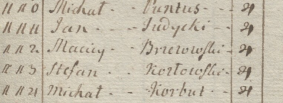 1110 Michał - Puntus - 21
1111 Jan - - Judycki - 21
1112 Maciey - Bruzowski - 21
1113 Stefan - Kozłowski - 21
1114 Michał - Korbut - 21